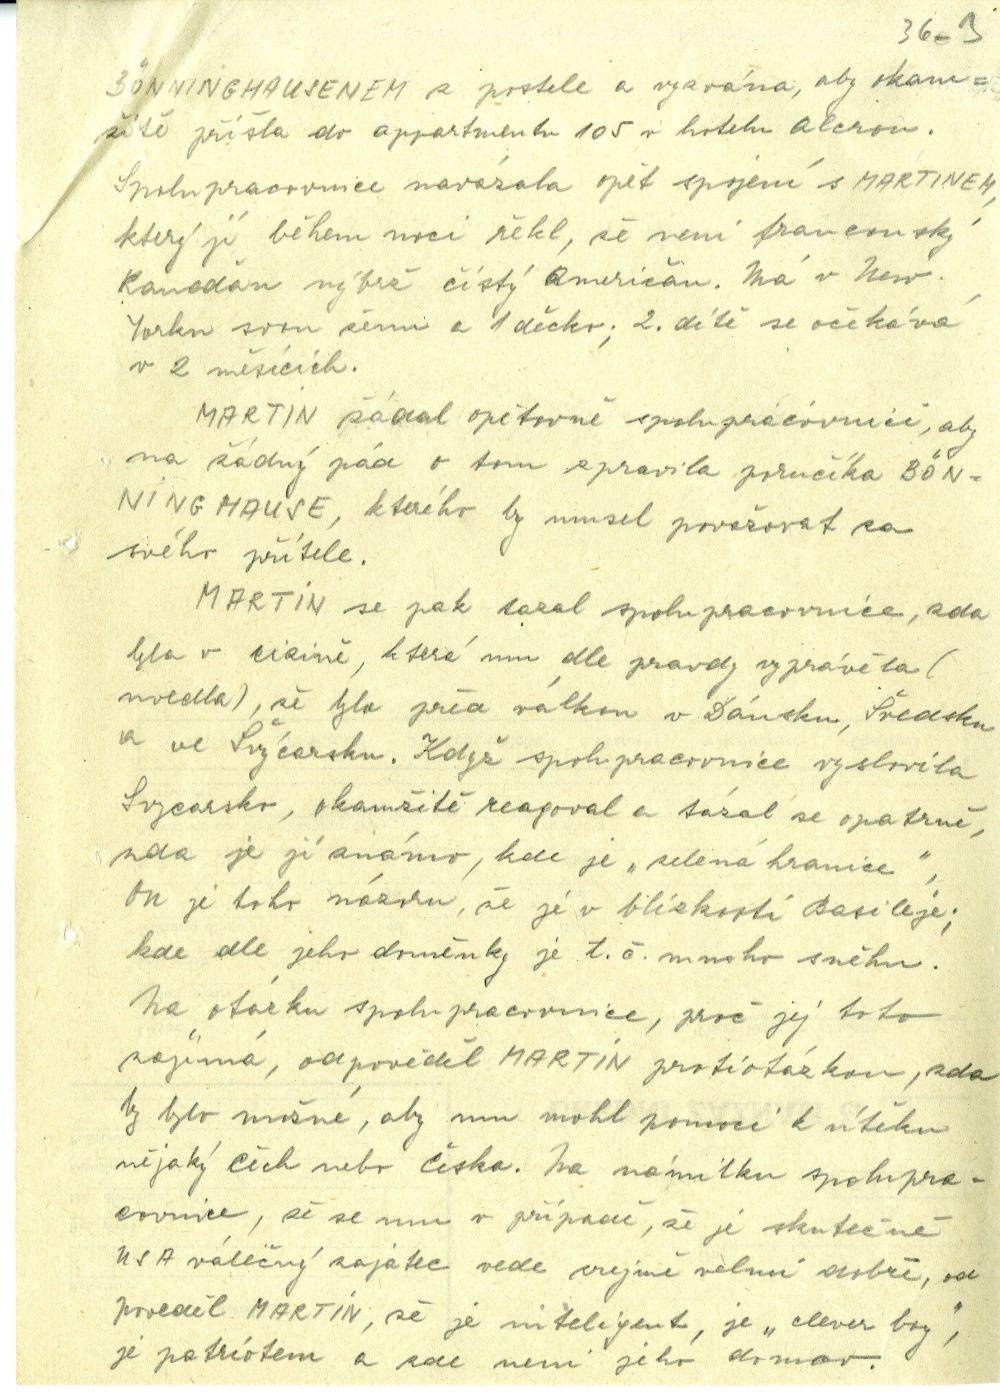 36-3
BÖNNINGHAUSENEM z postele a vyzvána, aby okam=
žitě přišla do appartmentu 105 v hotelu Alcron.
Spolupracovnice navázala opět spojení s MARTINEM,
který jí během noci řekl, že není francouský
Kanaďan nýbrž čistý Američan. Má v New
Yorku svou ženu a 1 děcko; 2. dítě se očekává
v 2 měsících.
MARTIN žádal opětovně spolupracovnici, aby
na žádný pád o tom zpravila poručíka BÖN-
NINGHAUSE, kterého by musel považovat za
svého přítele.
MARTIN se pak tázal spolupracovnice, zda
byla v cizině, která mu dle pravdy vyprávěla (
uvedla), že byla před válkou v Dánsku, Švedsku
a ve Švýcarsku. Když spolupracovnice vyslovila
Švycarsko, okamžitě reagoval a tázal se opatrně,
zda je jí známo, kde je „zelená hranice",
On je toho názoru, že je v blízkosti Basileje;
kde dle jeho domněnky je t.č. mnoho sněhu.
Na otázku spolupracovnice, proč jej toto
zajímá, odpověděl MARTIN protiotázkou, zda
by bylo možné, aby mu mohl pomoci k útěku
nějaký Čech nebo Češka. Na námitku spolupra-
covnice, že se mu v případě, že je skutečně
USA válečný zajatec vede zřejmě velmi dobře, od
pověděl MARTIN, že je inteligent, je „clever boy",
je patriotem a zde není jeho domov.